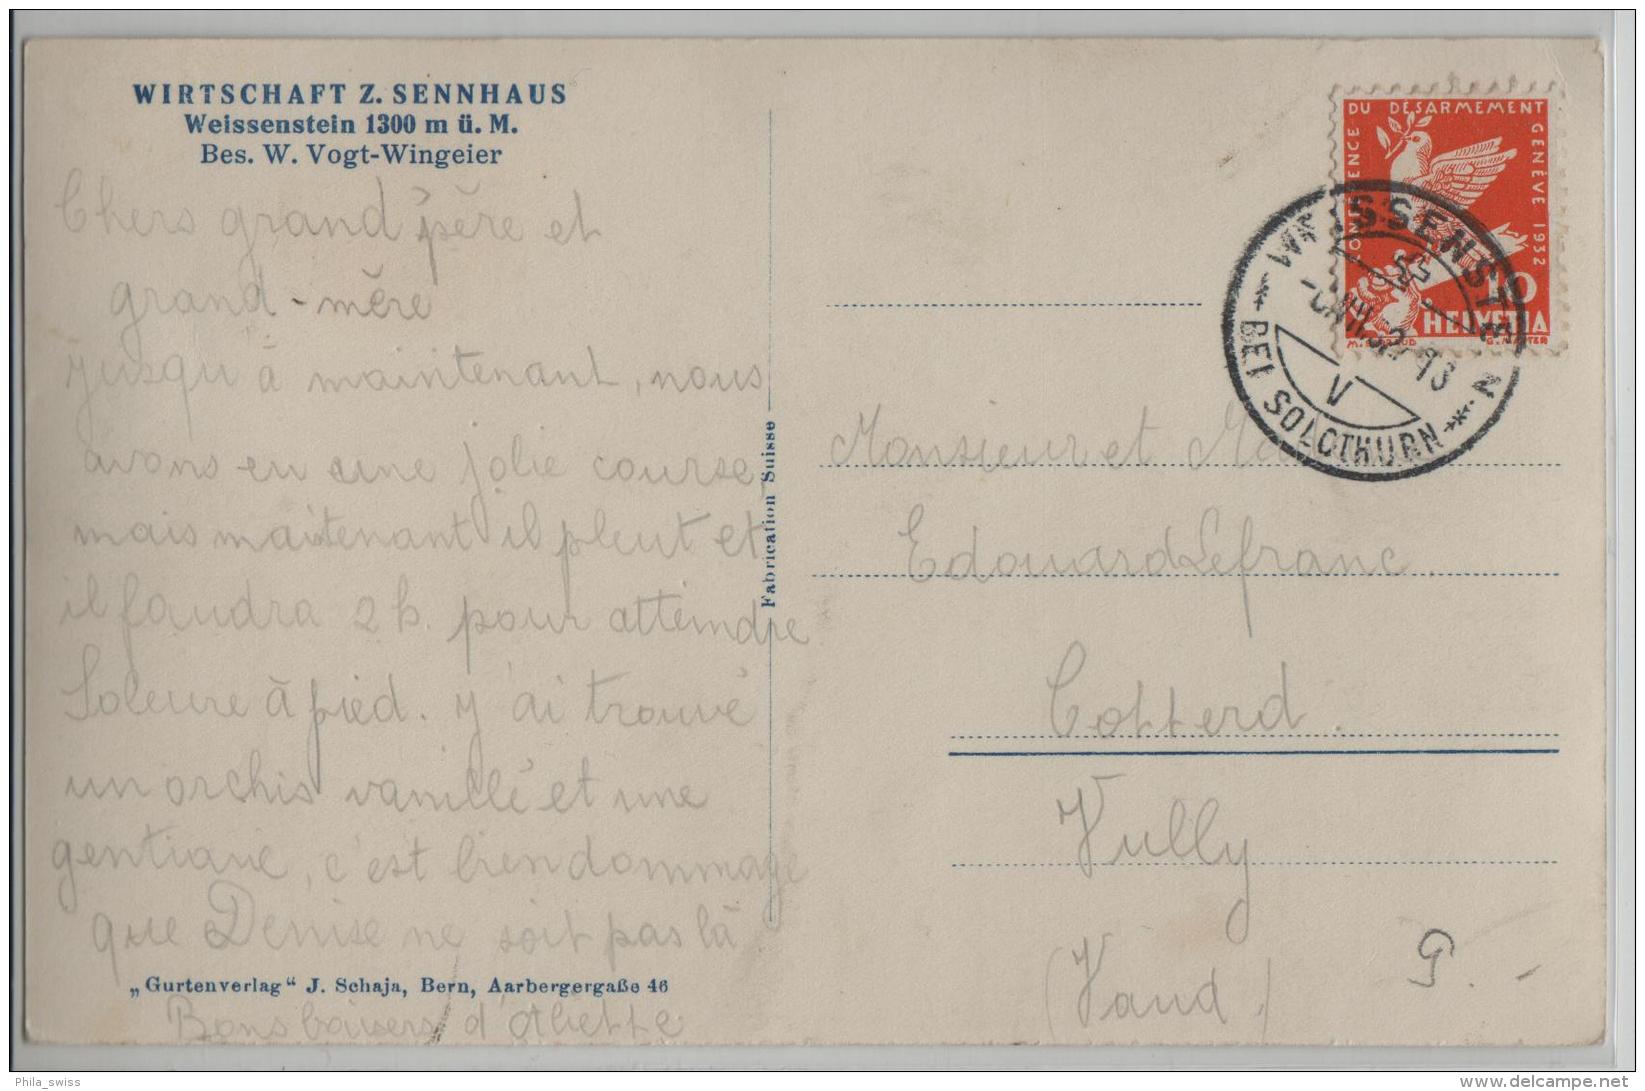 WIRTSCHAFT Z. SENNHAUS
Weissenstein 1300 m ü. M.
Bes. W. Vogt-Wingeier
Chers grand'père et
grand-mère
jusqu'à maintenant, nous
avons eu une jolie course,
mais maintenant il pleut et
il faudra 2 h. pour atteindre
Soleure à pied. J'ai trouvé
un orchis vanillé et une
gentiane, c'est bien dommage
que Denise ne soit pas là
„Gurtenverlag“ J. Schaja, Bern, Aarbergergaße 46
Bons baisers d'Aliette
Fabrication Suisse
CONFERENCE DU DÉSARMEMENT GENÈVE 1932
10
HELVETIA
G. MATTER
WEISSENSTEIN
BEI SOLOTHURN
V
Monsieur et
Edouard Lefranc.
Cotterd.
Vully
(Vaud.)
G. -
Phila_swiss
delcampe.net